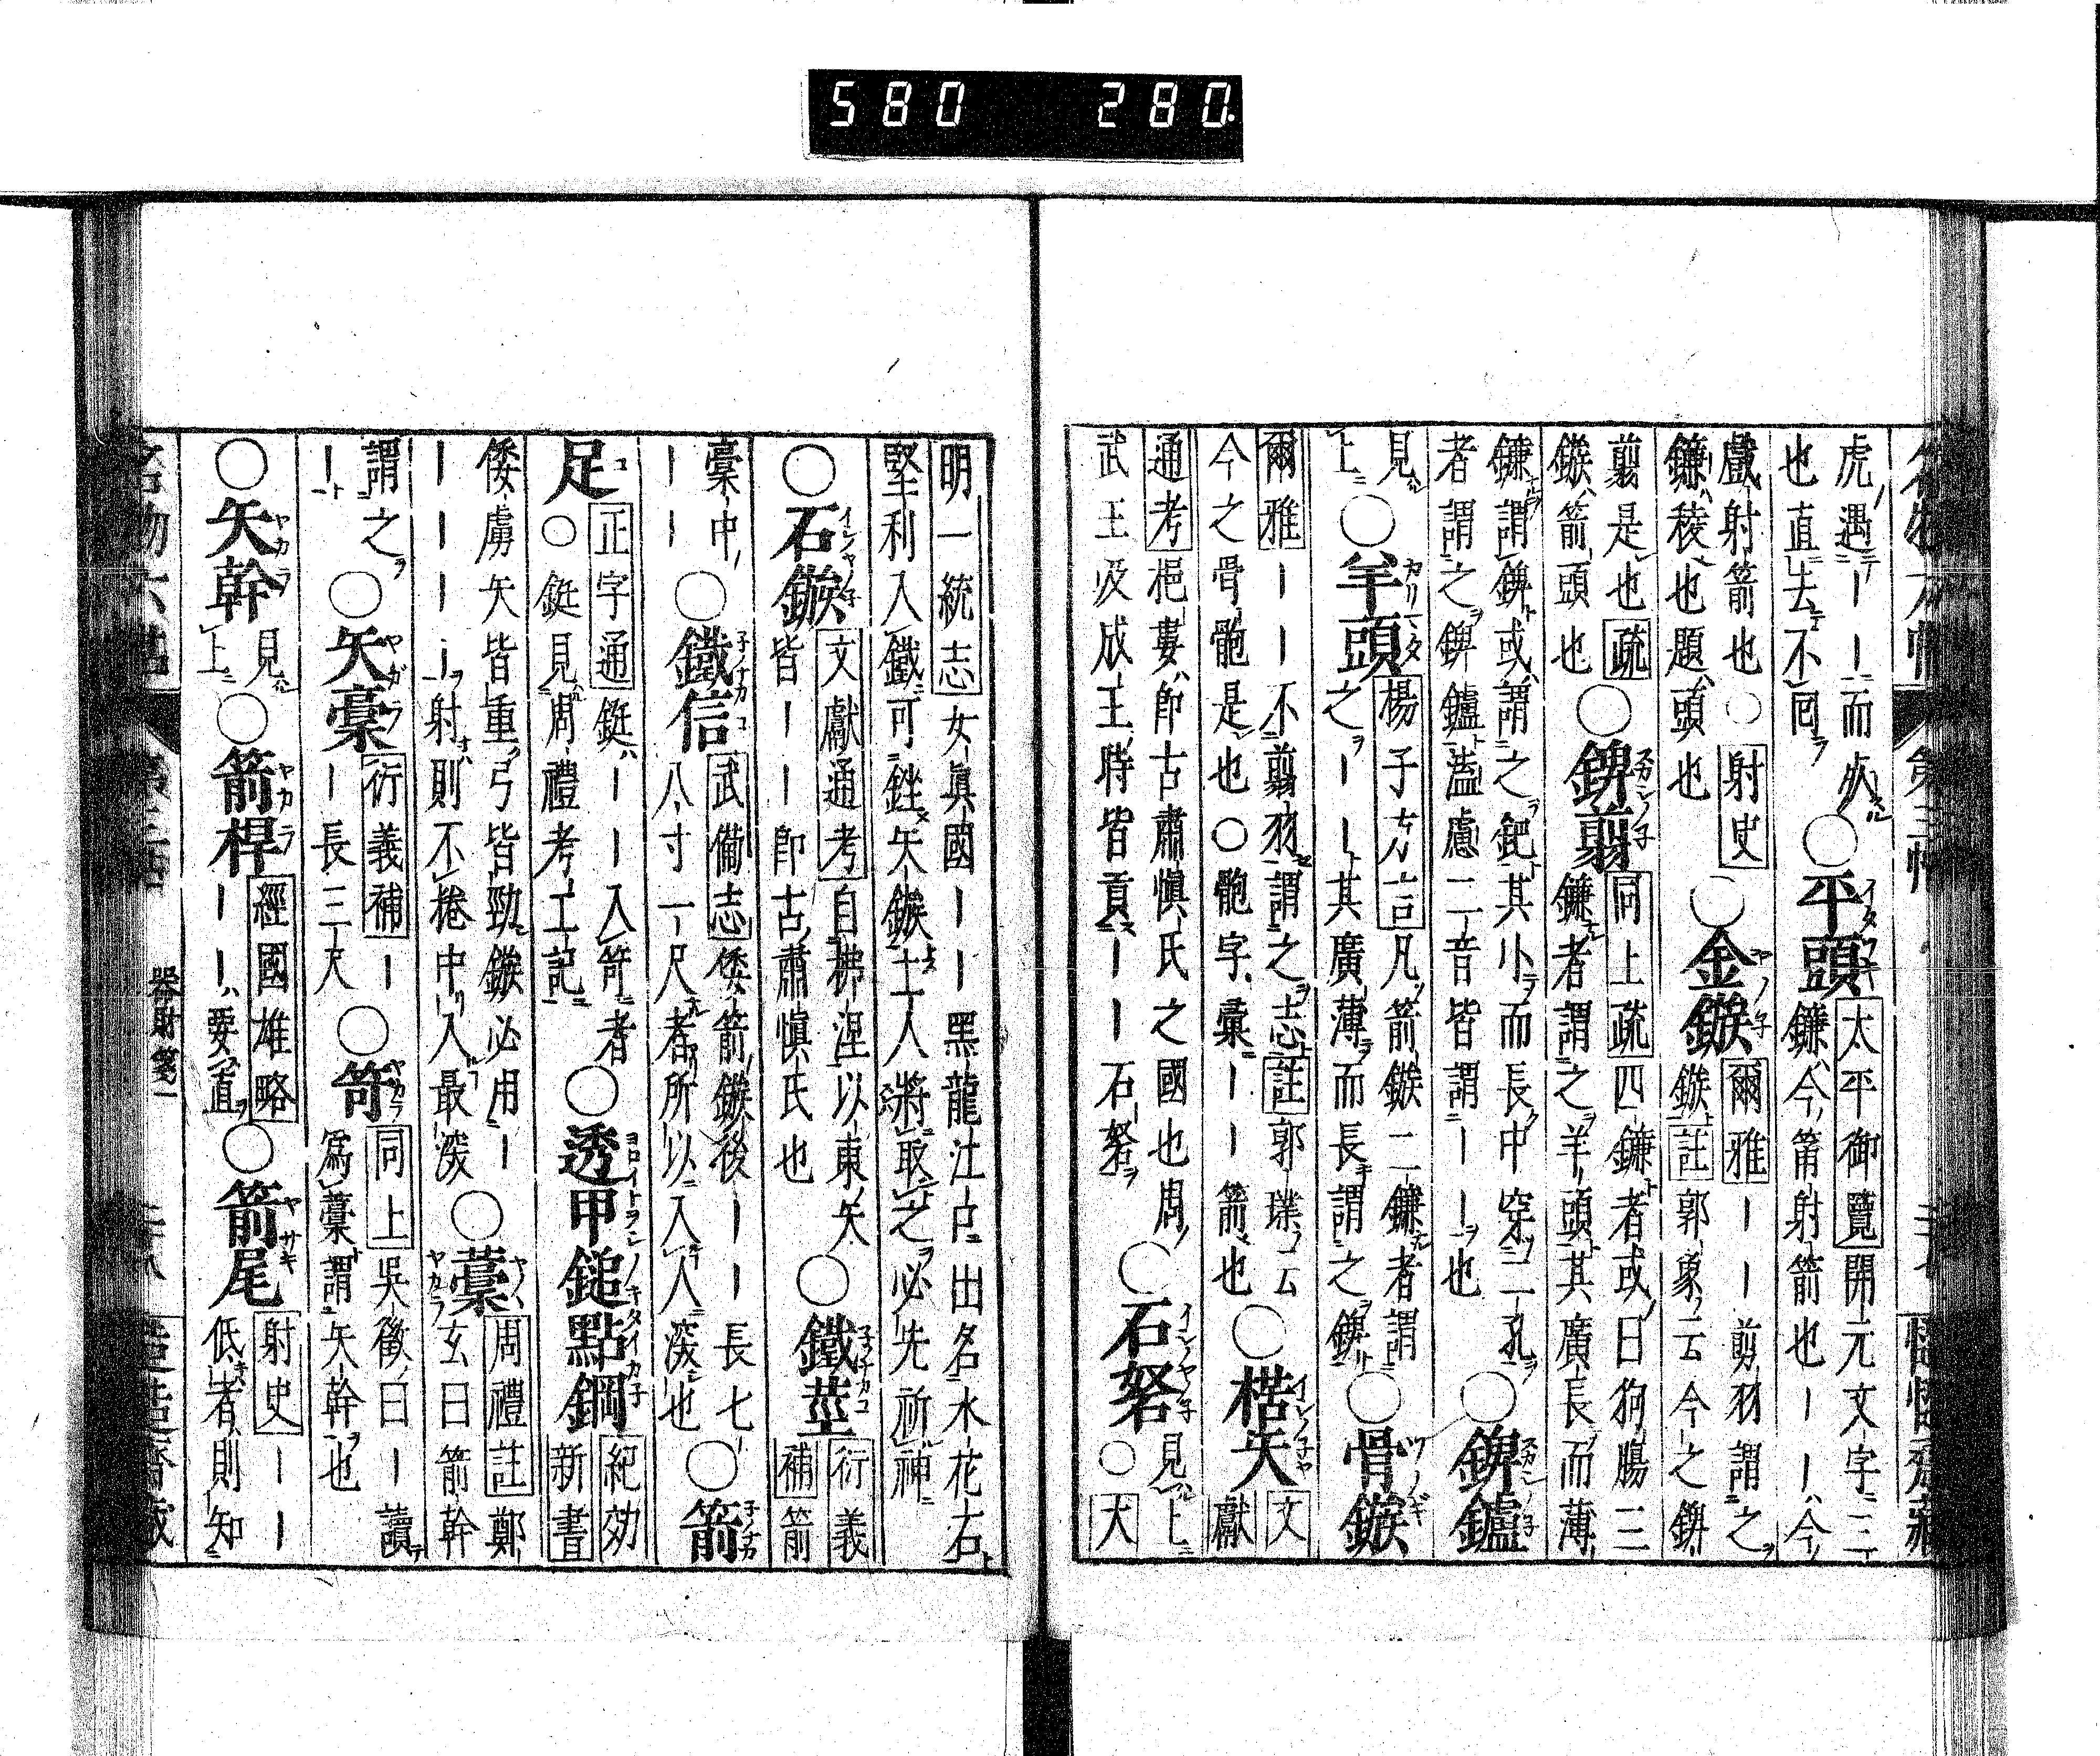 580 280
虎遇ーー而㸠
也直去不囘
○平頭 太平御覽開元文字三
鐮今箭射箭也ーー今
戲射箭也○射史
鐮稜也題頭也
○金鏃 爾雅ーー剪羽謂之
鏃註郭象云今之錍
翦是也疏
鏃箭頭也
○錍翦 同上疏四鐮者或曰狗腸三
鐮者謂之羊頭其廣長而薄
鐮謂錍或謂之鈀其小而長中穿二孔
者謂之錍鑪溘慮二音皆謂ーー也
○錍鑪
見
上
○羊頭 楊子方言凡箭鏃二鐮者謂
之ーー其廣薄而長謂之錍
○骨鏃
爾雅ーー不翦羽謂之志註郭璞云
今之骨骲是也○骲字彙ーー箭也
○楛矢 文
獻
通考挹婁卽古肅愼氏之國也周
武王及成王時皆貢ーー石砮
○石砮 見上
○大
明一統志女眞國ーー黑龍江口出名水花石
堅利入鐵可銼矢鏃土人將取之必先祈神
○石鏃 文獻通考自拂涅以東矢
皆ーー卽古肅愼氏也
○鐵莖 衍義
補箭
槀中
ーー
○鐵信 武備志倭箭鏃後ーー長七
八寸一尺者所以入人深也
○箭
足 正字通鋌ーー入笴者
○鋌見周禮考工記
○透甲鎚點鋼 紀効
新書
倭虜矢皆重弓皆勁鏃必用ー
ーーーー射則不捲中人最深
○藁 周禮註鄭
玄曰箭幹
謂之
ーー
○矢槀 衍義補ー
ー長三尺
○笴 同上吳徵曰ー讀
爲藁謂矢幹也
○矢幹 見
上
○箭桿 經國雄略
ーーー要直
○箭尾 射史ーー
低者則知
器財箋一